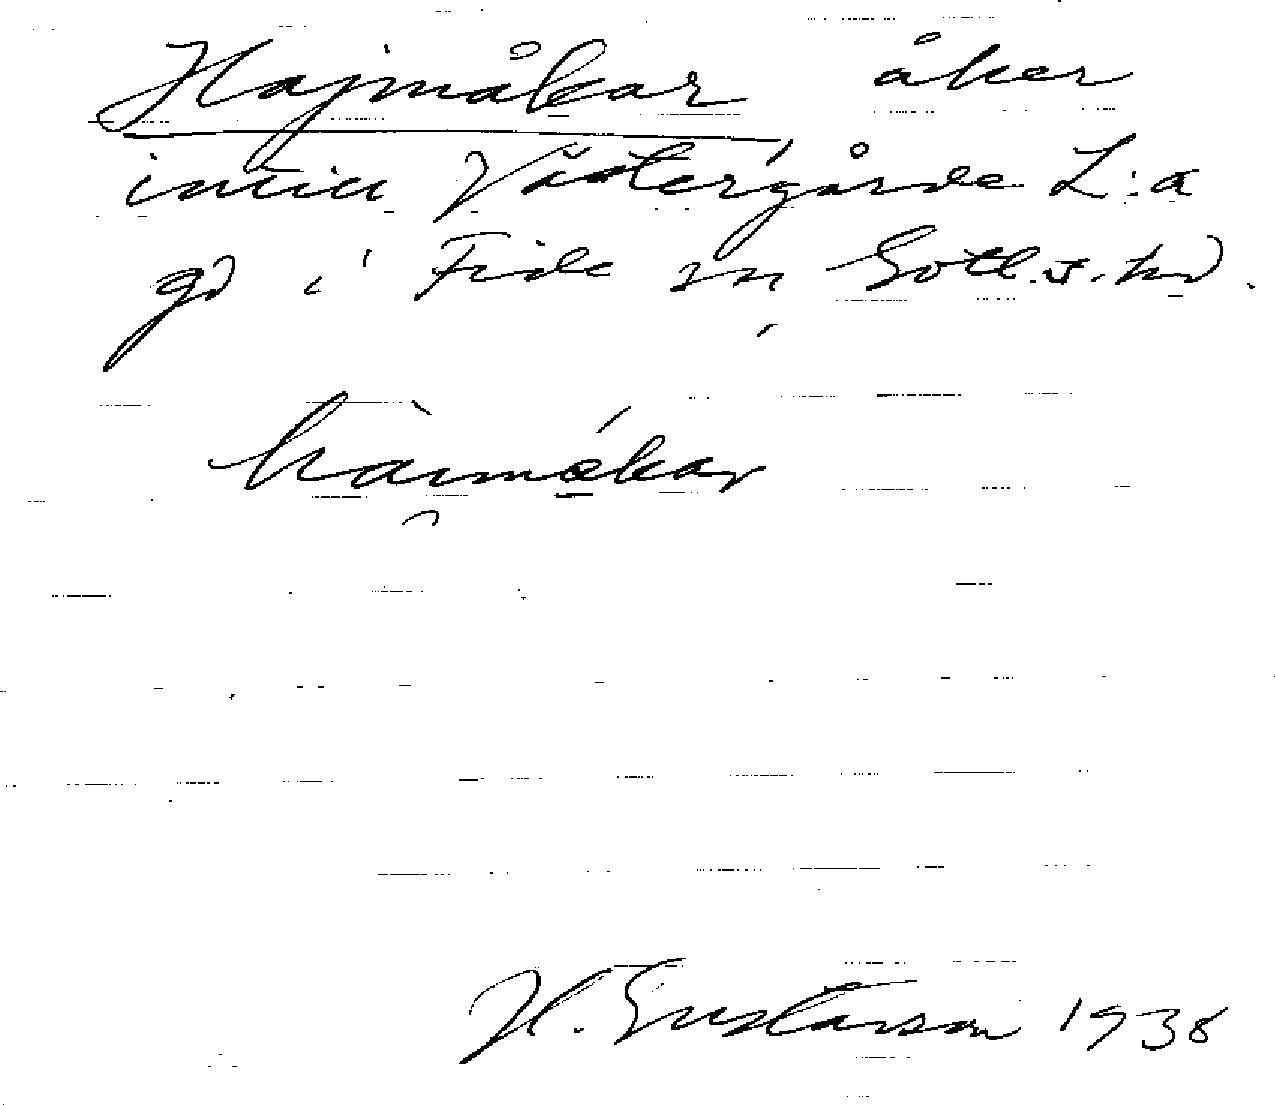 Hajmåkar åker
intill Västergårde L:a
gd i Fide sn Gotl.s.hd.
hàimåkar
H. Gustavson 1938